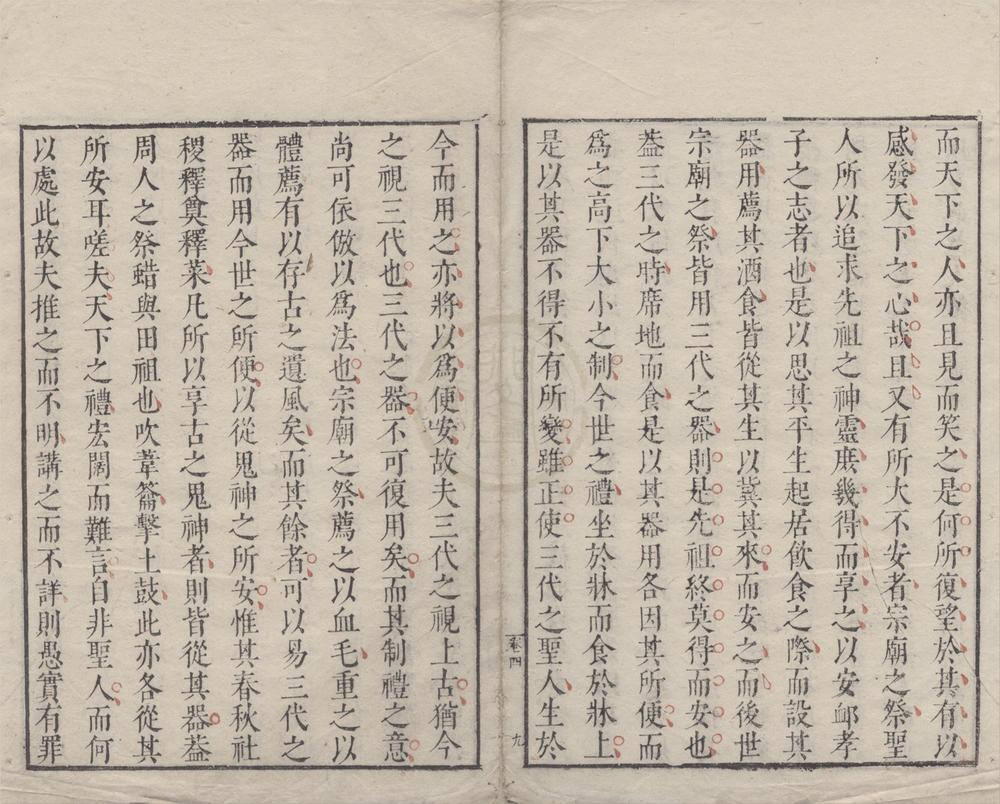 而天下之人亦且見而笑之是何所復望於其有以
感發天下之心哉且又有所大不安者宗廟之祭聖
人所以追求先祖之神靈庶幾得而享之以安卹孝
子之志者也是以思其平生起居飲食之際而設其
器用薦其酒食皆從其生以冀其來而安之而後世
宗廟之祭皆用三代之器則是先祖終莫得而安也
葢三代之時席地而食是以其器用各因其所便而
爲之高下大小之制今世之禮坐於牀而食於牀上
是以其器不得不有所變雖正使三代之聖人生於
卷四
九
今而用之亦將以爲便安故夫三代之視上古猶今
之視三代也三代之器不可復用矣而其制禮之意
尚可依倣以爲法也宗廟之祭薦之以血毛重之以
體薦有以存古之遺風矣而其餘者可以易三代之
器而用今世之所便以從鬼神之所安惟其春秋社
稷釋奠釋菜凡所以享古之鬼神者則皆從其器葢
周人之祭蜡與田祖也吹葦籥擊土鼓此亦各從其
所安耳嗟夫天下之禮宏闊而難言自非聖人而何
以處此故夫推之而不明講之而不詳則愚實有罪